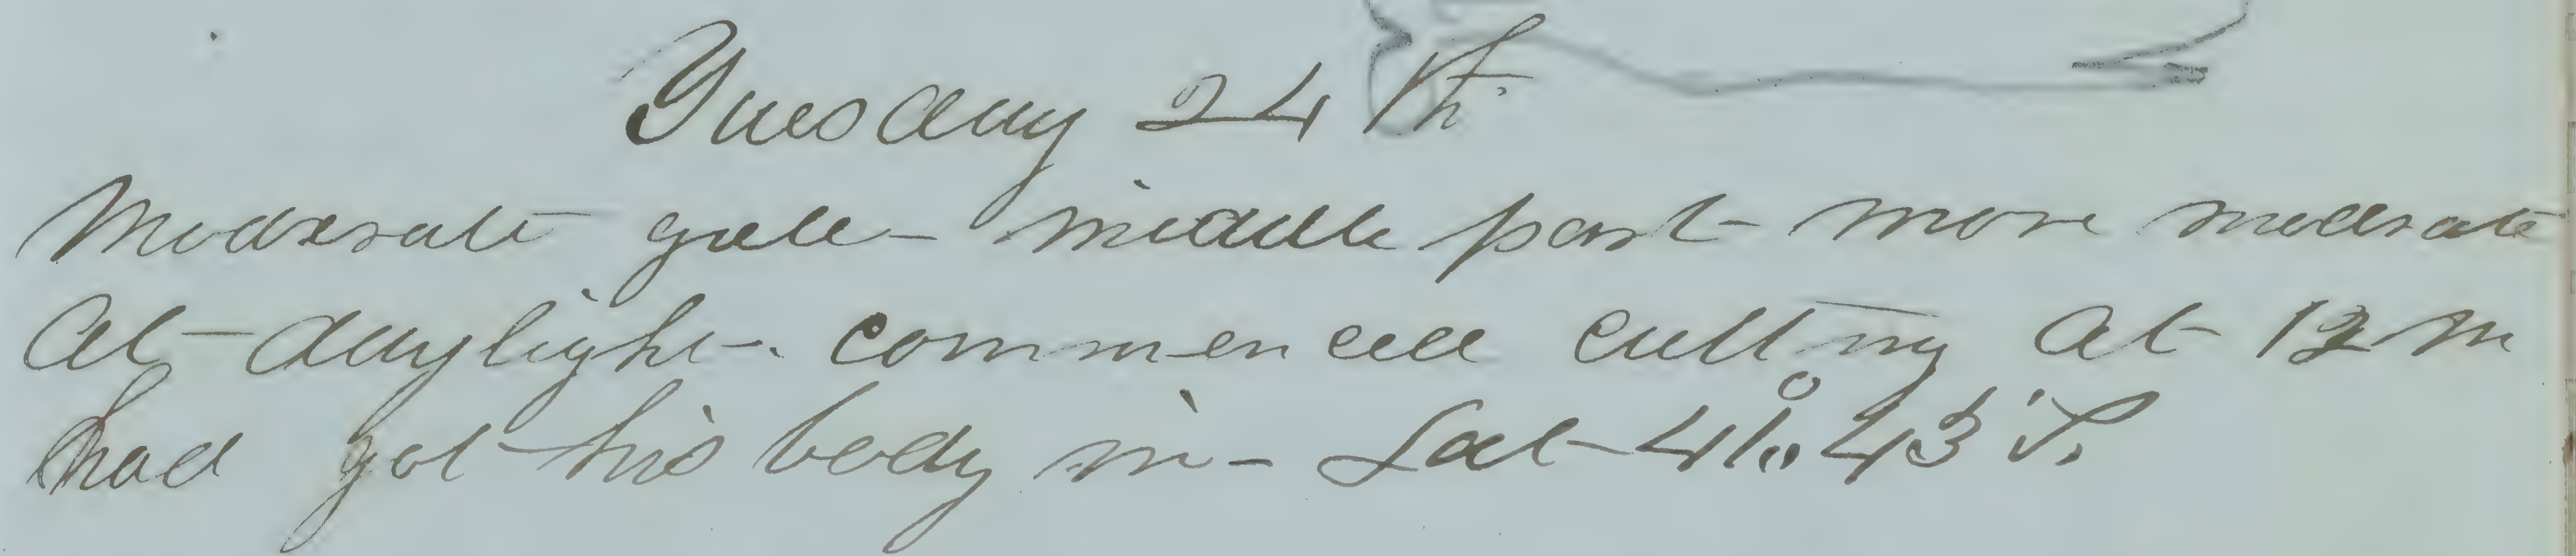 Tuesday 24th
Moderate gale - middle part - more moderate
At - daylight - commenced cutting at 12 m
had got his body in - Lat - 41°. 43' S.